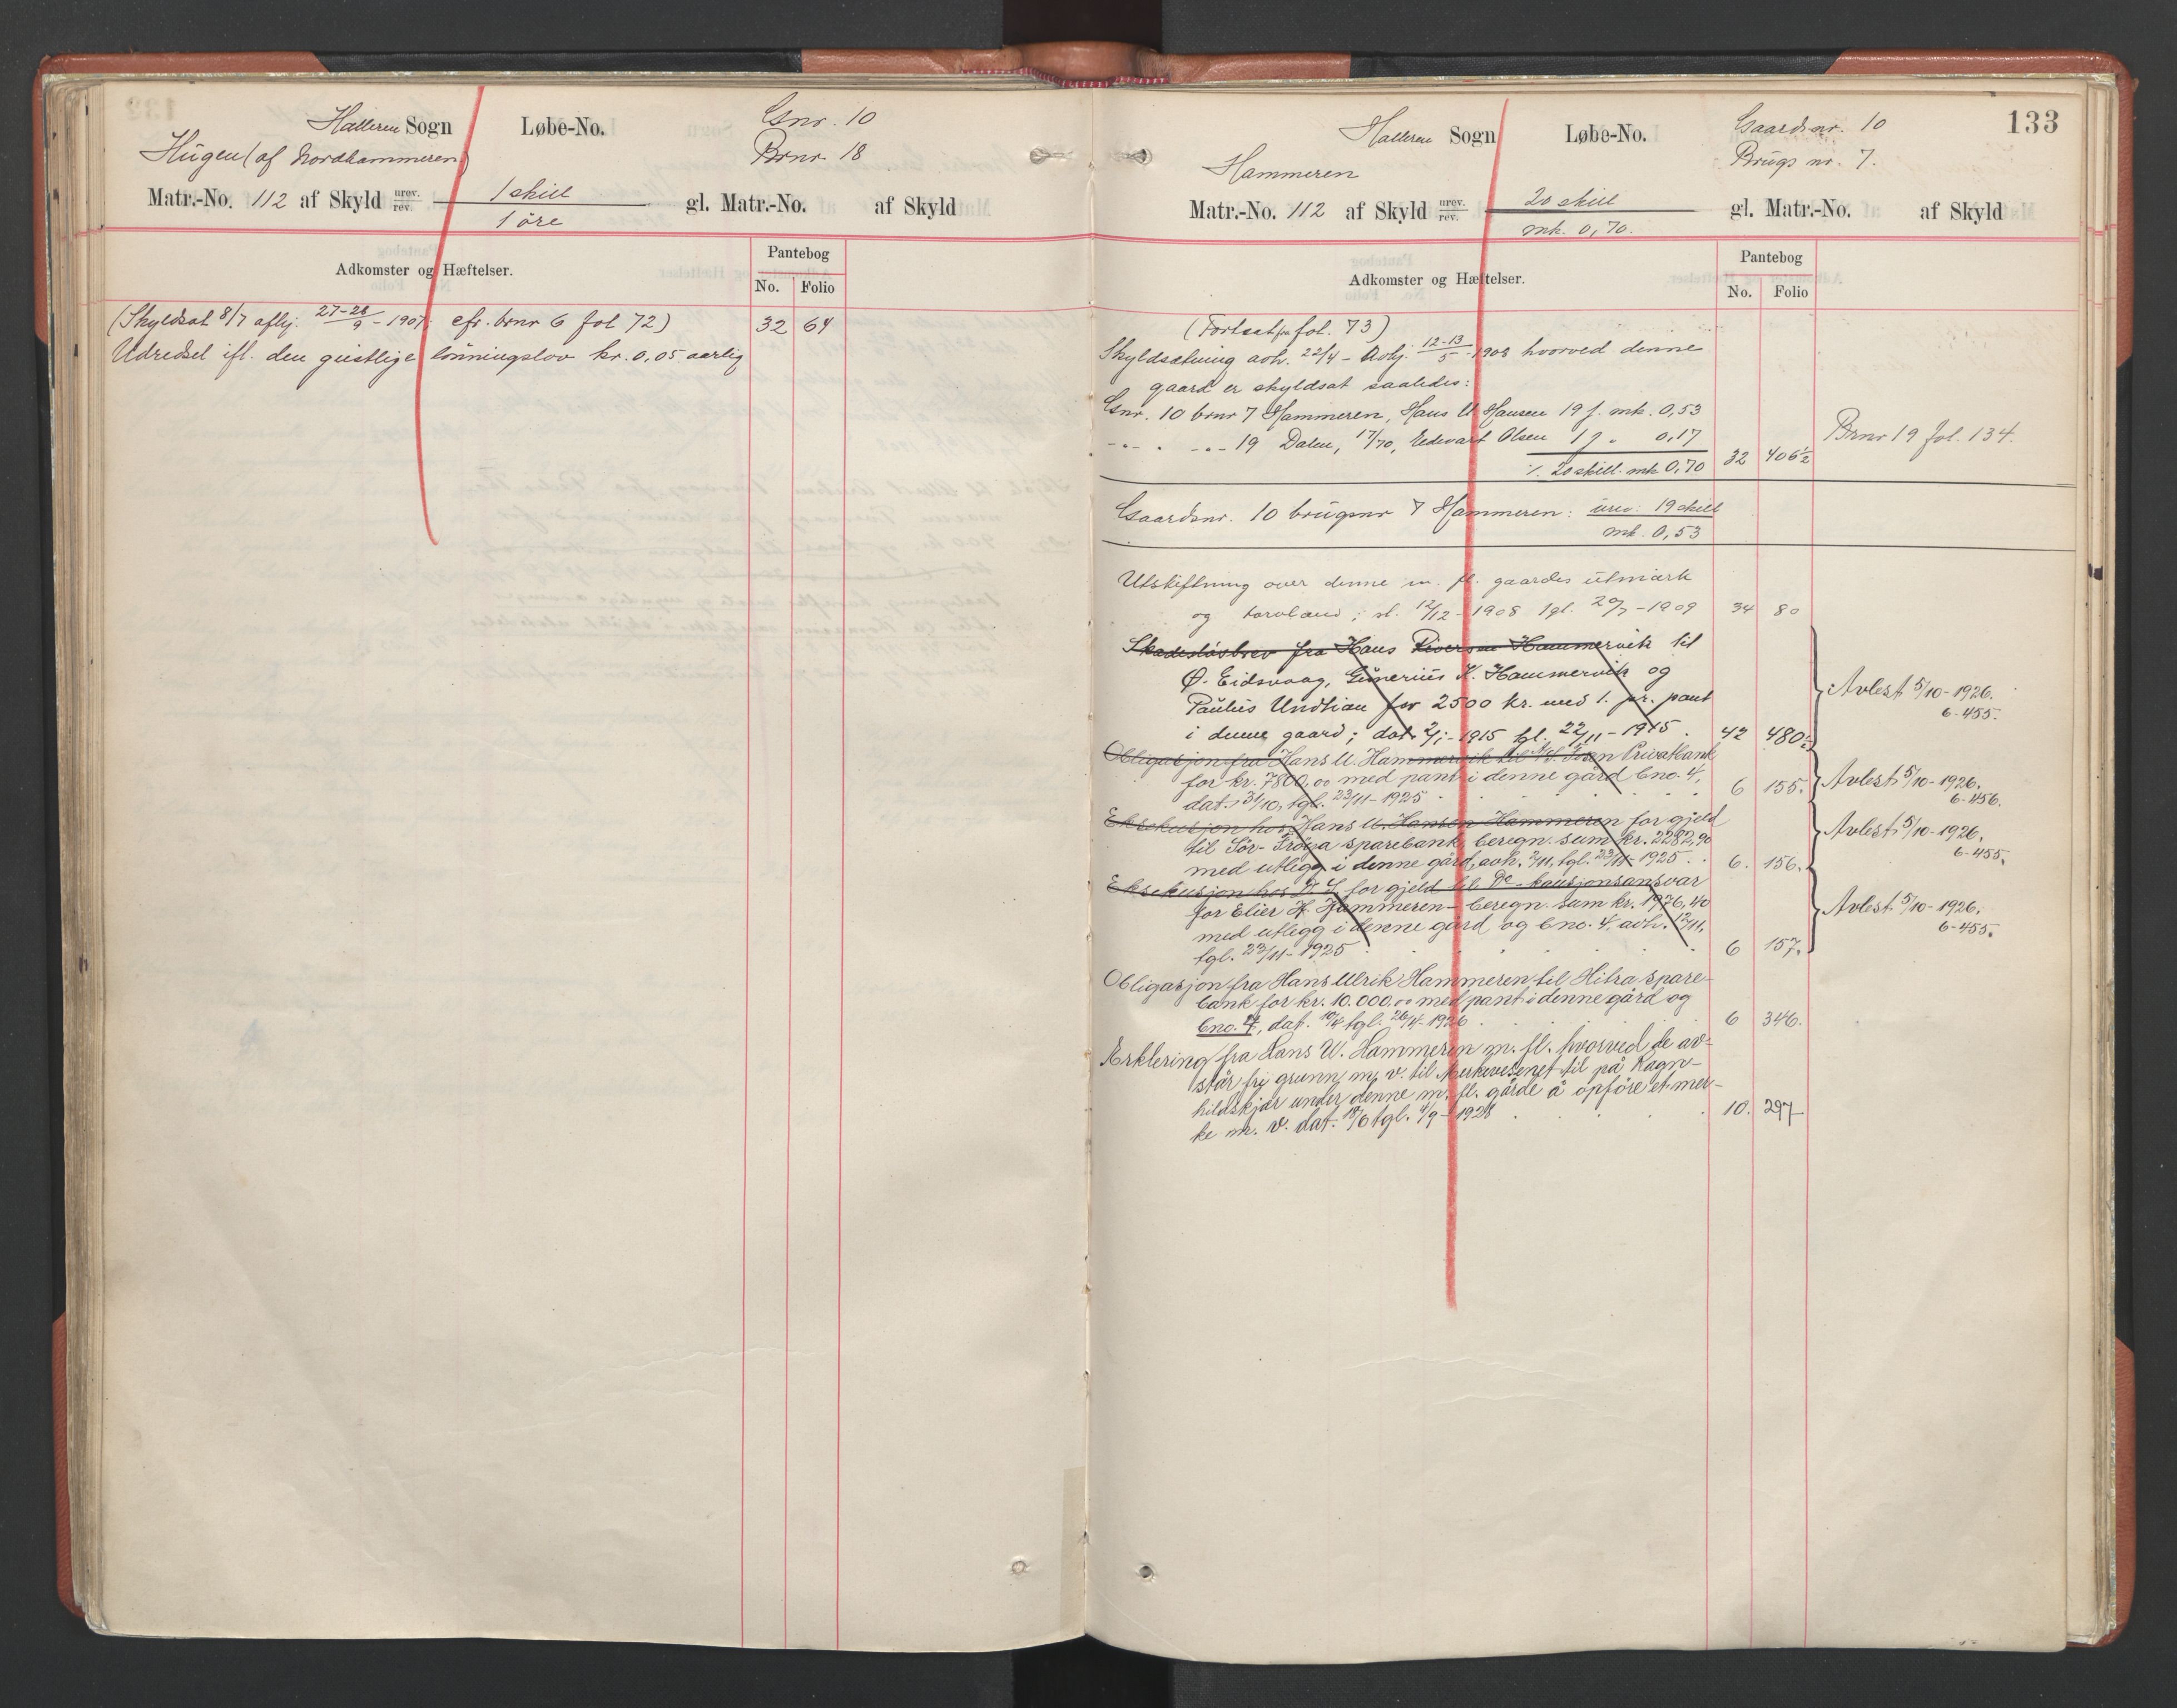 Halleren Sogn Løbe-No. Gnr. 10
Hügen (af Nordhammeren) Brnr. 18
Matr.-No. 112 af Skyld urev. 1 skill gl. Matr.-No. af Skyld
rev. 1 øre
Adkomster og Hæftelser. Pantebog
No. Folio
(Skyldsat 8/7 aflj. 27-28/9 - 1907. cfr. brnr 6 fol 72) 32 64
Udredsel ifl. den geistlige lønningslov kr. 0,05 aarlig
133
Halleren Sogn Løbe-No. Gaardsnr. 10
Hammeren Brugs nr. 7.
Matr.-No. 112 af Skyld urev. 20 skill gl. Matr.-No. af Skyld
rev. mk. 0,70.
Adkomster og Hæftelser. Pantebog
No. Folio
(Fortsat fra fol. 73)
Skyldsætning avh. 22/4 - Avlj. 12-13/5 - 1908 hvorved denne
gaard er skyldsat saaledes:
Gnr. 10 brnr 7 Hammeren, Hans U. Hansen 19 f. mk. 0,53
19 Dalen, 17/70, Edevart Olsen 1 0,17 Brnr 19 fol. 134.
20 skill. mk 0,70 32 406½
Gaardsnr. 10 brugsnr 7 Hammeren: urev: 19 skill
mk. 0,53
Utskiftning over denne m. fl. gaardes utmark
og torvland; sl. 12/12 - 1908 tgl. 20/7 - 1909 34 80
Skadesløsbrev fra Hans Hammervik til
Ø. Eidsvaag, Gunerius H. Hammervik og
Paulus Undtian for 2500 kr. med 1. pr. pant
i denne gaard; dat. 2/1 - 1915 tgl. 22/11 - 1915. 42 480
Avlest 5/10 - 1926.
6-455.
Obligasjon fra Hans U. Hammervik til A/S Fosen Privatbank
for kr. 7800,00 med pant i denne gård bno. 4,
dat. 31/10, tgl. 23/11 - 1925 6 155.
Avlest 5/10 - 1926.
6-456.
Eksekusjon hos Hans U. Hansen Hammeren for gjeld
til Sør-Frøya sparebank, beregn. sum kr. 2282,90
med utlegg i denne gård, avh. 2/11, tgl. 23/11 - 1925. 6. 156.
Avlest 5/10 - 1926.
6-455.
Eksekusjon hos D. S. for gjeld til Do - kausjonsansvar
for Elier H. Hammeren - beregn. sum kr. 1976,40
med utlegg i denne gård og bno. 4, avh. 12/11,
tgl. 23/11 - 1925 6 157.
Avlest 5/10 - 1926.
6-455.
Obligasjon fra Hans Ulrik Hammeren til Hitra spare-
bank for kr. 10.000,00 med pant i denne gård og
bno. 4, dat. 10/4 tgl. 26/4 - 1926 6 346.
Erklering fra Hans U. Hammeren m. fl. hvorved de av-
står fri grunn m. v. til Merkevesenet til på Ragn-
hildskjær under denne m. fl. gårde å opføre et mer-
ke m. v. dat. 18/6 tgl. 4/9 - 1928 10. 297